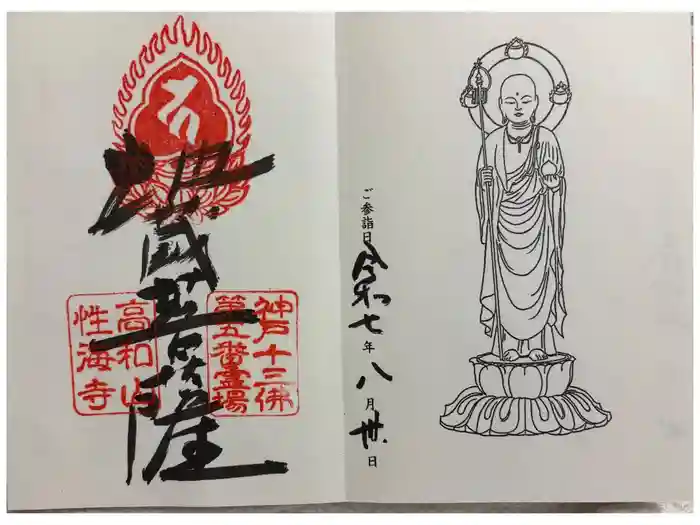 ご参詣日 令和七年 八月 卅日
地蔵菩薩
神戸十三佛
第五番霊場
高和山
性海寺